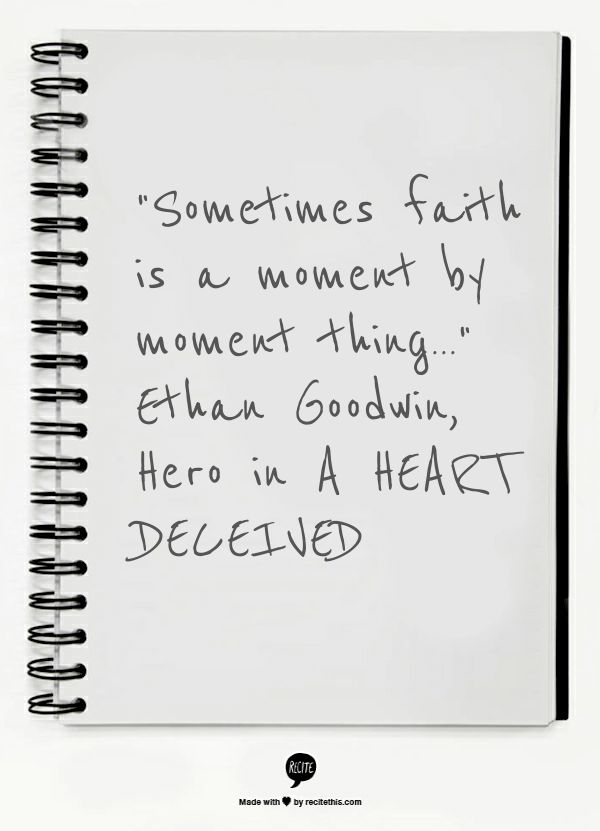 "Sometimes faith
is a moment by
moment thing..."
Ethan Goodwin,
Hero in A HEART
DECEIVED
RECITE
Made with ♥ by recitethis.com